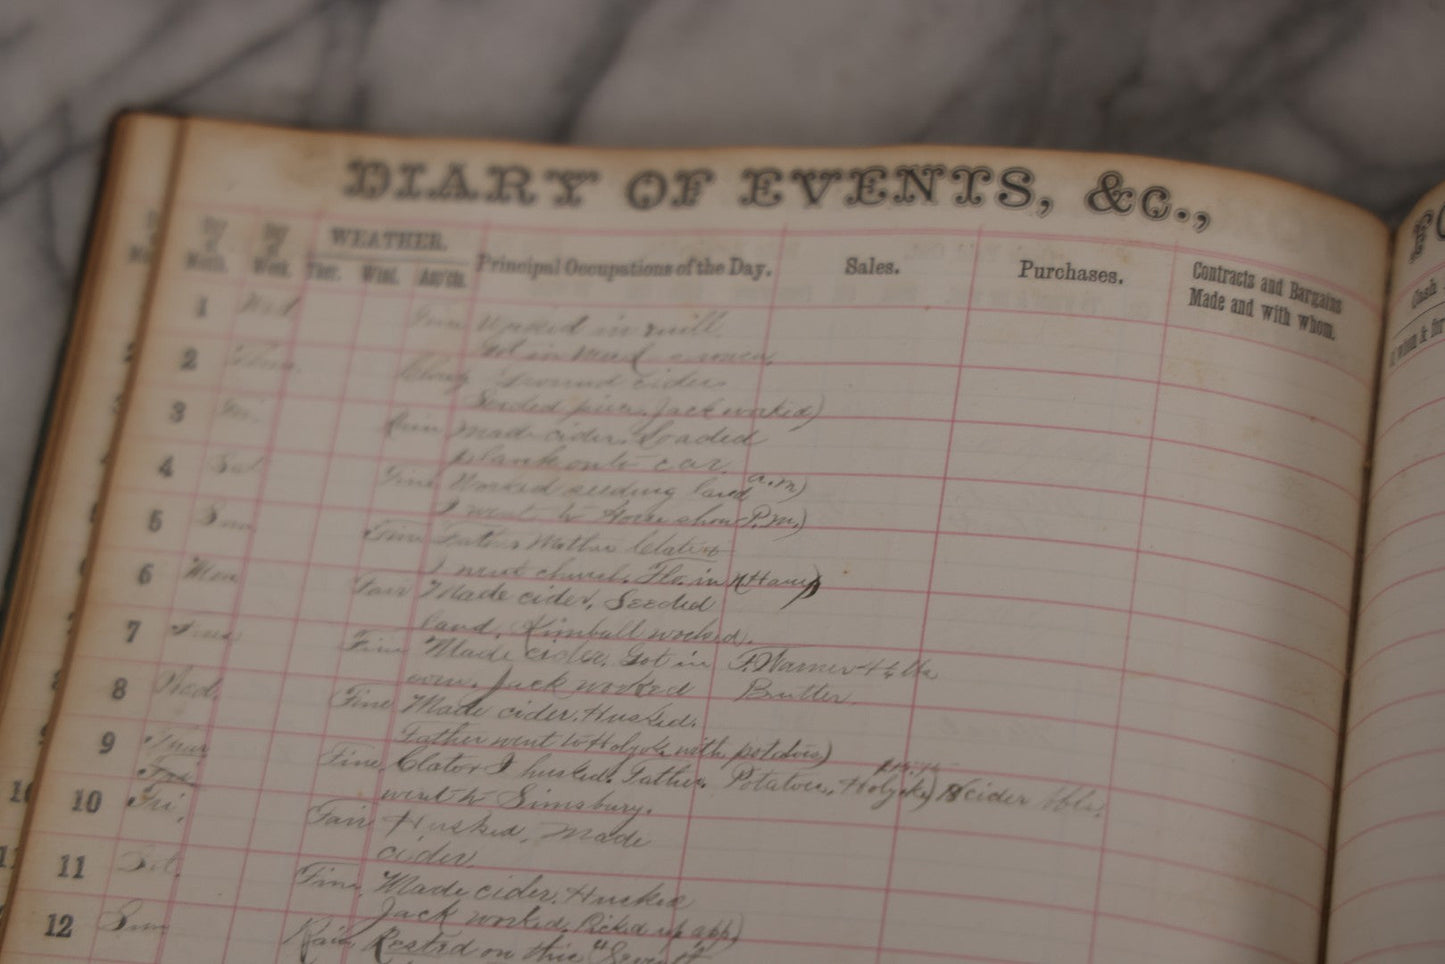 DIARY OF EVENTS, &c.,
WEATHER.
Principal Occupations of the Day.
Sales.
Purchases.
Contracts and Bargains
Made and with whom.
Month. Week. Ther. Wind.
1 Wed Fine Worked in mill
Got in
2 Thur. Cloudy Ground cider.
Seeded piece. Jack worked)
3 Fri. Rain Made cider. Loaded
plank onto car.
4 Sat Fine Worked seeding land a.m)
I went to Horse show P.m.)
5 Sun Fine Father Mother Clator
I went church. Flo. in N Hamp)
6 Mon Fair Made cider. Seeded
land. Kimball worked.
7 Tues Fine Made cider. Got in F. Warner 4 ½ lbs
corn. Jack worked Butter.
8 Wed. Fine Made cider. Husked.
Father went to Holyoke with potatoes)
9 Thur Fine. Clator & I husked. Father Potatoes, Holyoke) 18 cider bbls.
went to Simsbury.
10 Fri. Fair Husked. Made
cider.
11 Sat. Fine. Made cider. Husked
Jack worked. Picked up app)
12 Sun Rain Rested on this
Cash